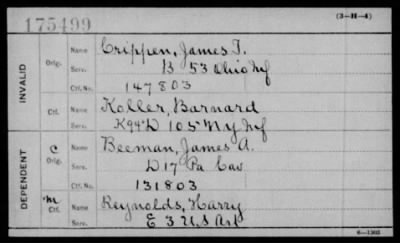 175499
(3-H-4)
INVALID
Orig.
Name Crippen, James T.
Serv. B 53 Ohio Inf
Ctf. No. 147803
Ctf.
Name Koller, Barnard
Serv. K 94 & D 105 N.Y. Inf
DEPENDENT
C
Orig.
Name Beeman, James A.
Serv. D 17 Pa Cav
Ctf. No. 131803
m
Ctf.
Name Reynolds, Harry
Serv. E 3 U.S Art
6-1303